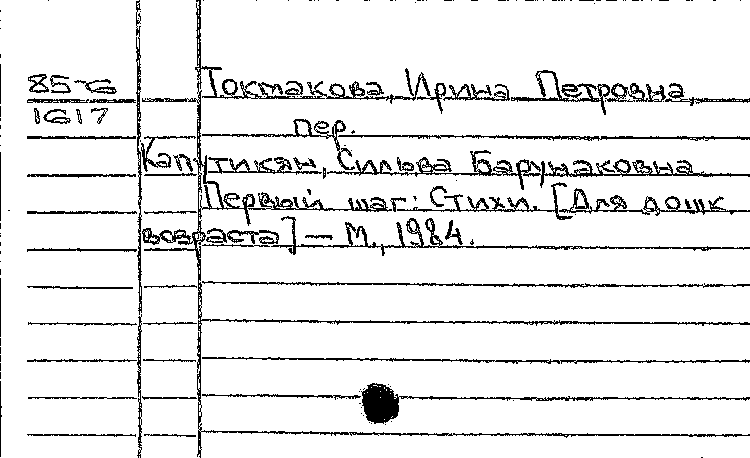 85-6
1617
Токмакова, Ирина Петровна,
пер.
Капутикян, Сильва Барунаковна
Первый шаг: Стихи. [Для дошк.
возраста] — М., 1984.